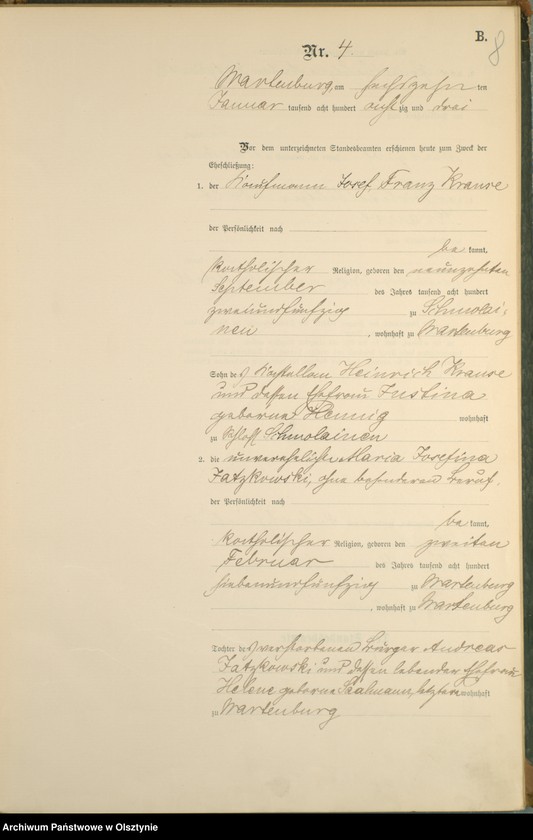 B.
8
Nr. 4.
Wartenburg, am sechszehn ten
Januar tausend acht hundert achtzig und drei
Vor dem unterzeichneten Standesbeamten erschienen heute zum Zweck der
Eheschließung:
1. der Kaufmann Josef Franz Krause
der Persönlichkeit nach
be kannt,
katholischer Religion, geboren den neunzehnten
September des Jahres tausend acht hundert
zweiundfünfzig zu Schmolai-
nen , wohnhaft zu Wartenburg
Sohn des Kastellan Heinrich Krause
und dessen Ehefrau Justina
geborne Hennig wohnhaft
zu Schloß Schmolainen
2. die unverehelichte Maria Josefina
Fatzkowski, ohne besonderen Beruf.
der Persönlichkeit nach
be kannt,
katholischer Religion, geboren den zweiten
Februar des Jahres tausend acht hundert
siebenundfünfzig zu Wartenburg
, wohnhaft zu Wartenburg
Tochter des verstorbenen Bürger Andreas
Fatzkowski und dessen lebender Ehefrau
Helene geborne letztere wohnhaft
zu Wartenburg
Archiwum Państwowe w Olsztynie